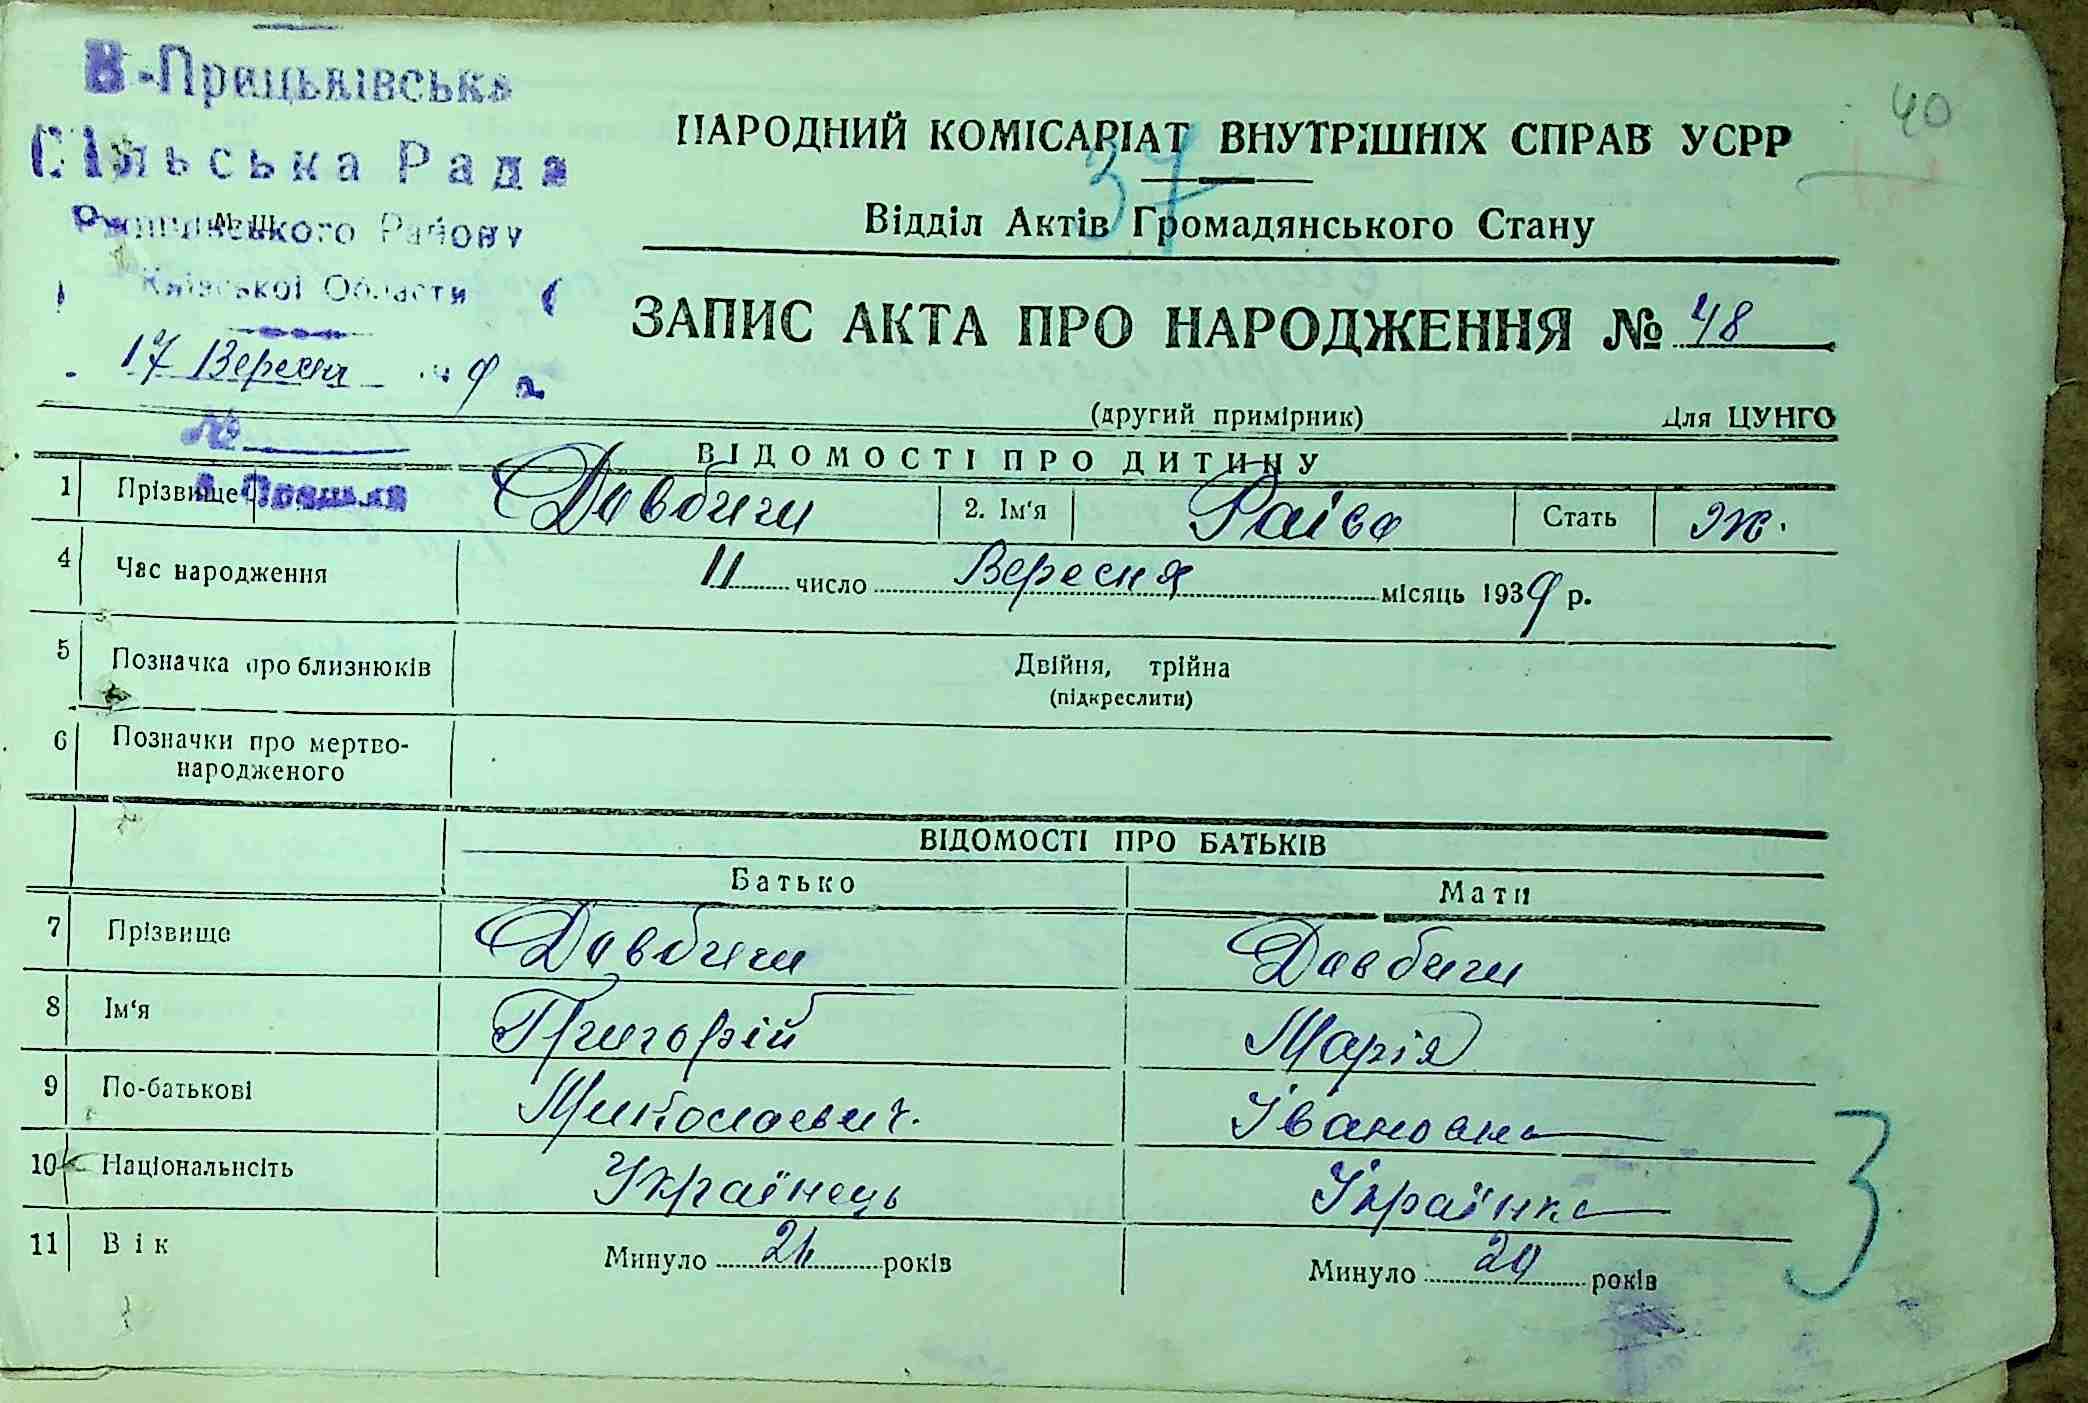 В-Прицьківська
Сільська Рада
Ржищівського Району
Київської Области
17 Вересня 9 р.
№
НАРОДНИЙ КОМІСАРІАТ ВНУТРІШНІХ СПРАВ УСРР
40
37
Відділ Актів Громадянського Стану
ЗАПИС АКТА ПРО НАРОДЖЕННЯ № 48
(другий примірник) Для ЦУНГО
ВІДОМОСТІ ПРО ДИТИНУ
1 Прізвище Довбиш 2. Ім'я Раіса Стать Ж.
4 Час народження 11 число Вересня місяць 1939 р.
5 Позначка про близнюків Двійня, трійна
(підкреслити)
6 Позначки про мертво-
народженого
ВІДОМОСТІ ПРО БАТЬКІВ
Батько Мати
7 Прізвище Довбиш Довбиш
8 Ім'я Григорій Марія
9 По-батькові Миколаевич. Івановна
10 Національнсіть Українець Українка
11 Вік Минуло 24 років Минуло 29 років
3